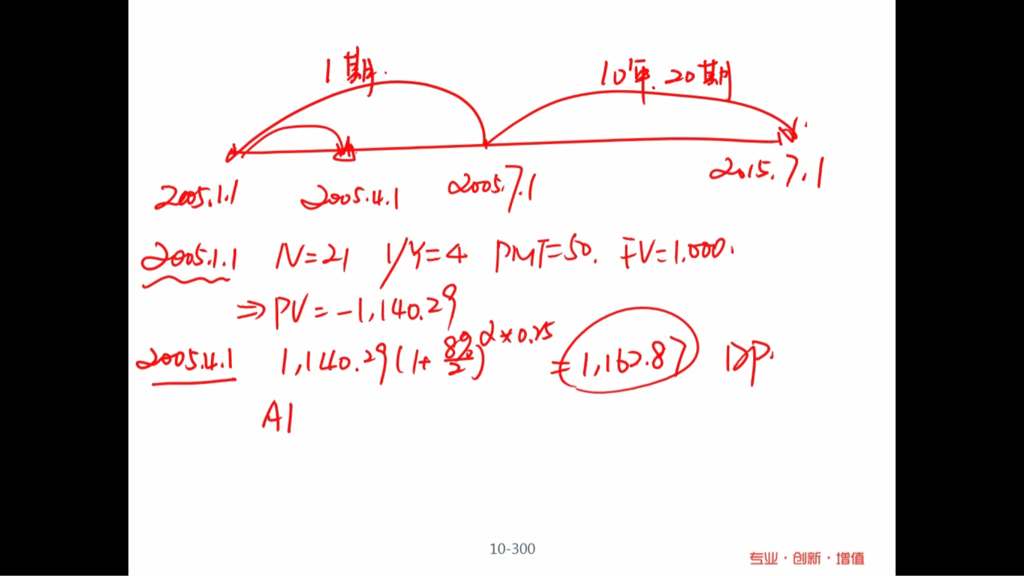 1期.
10年.20期
2005.1.1
2005.4.1
2005.7.1
2015.7.1
2005.1.1 N=21 I/Y=4 PMT=50. FV=1,000.
⇒PV=-1,140.29
2005.4.1 1,140.29(1+8%/2)^2*0.25=1,162.87 DP.
AI
10-300
专业·创新·增值